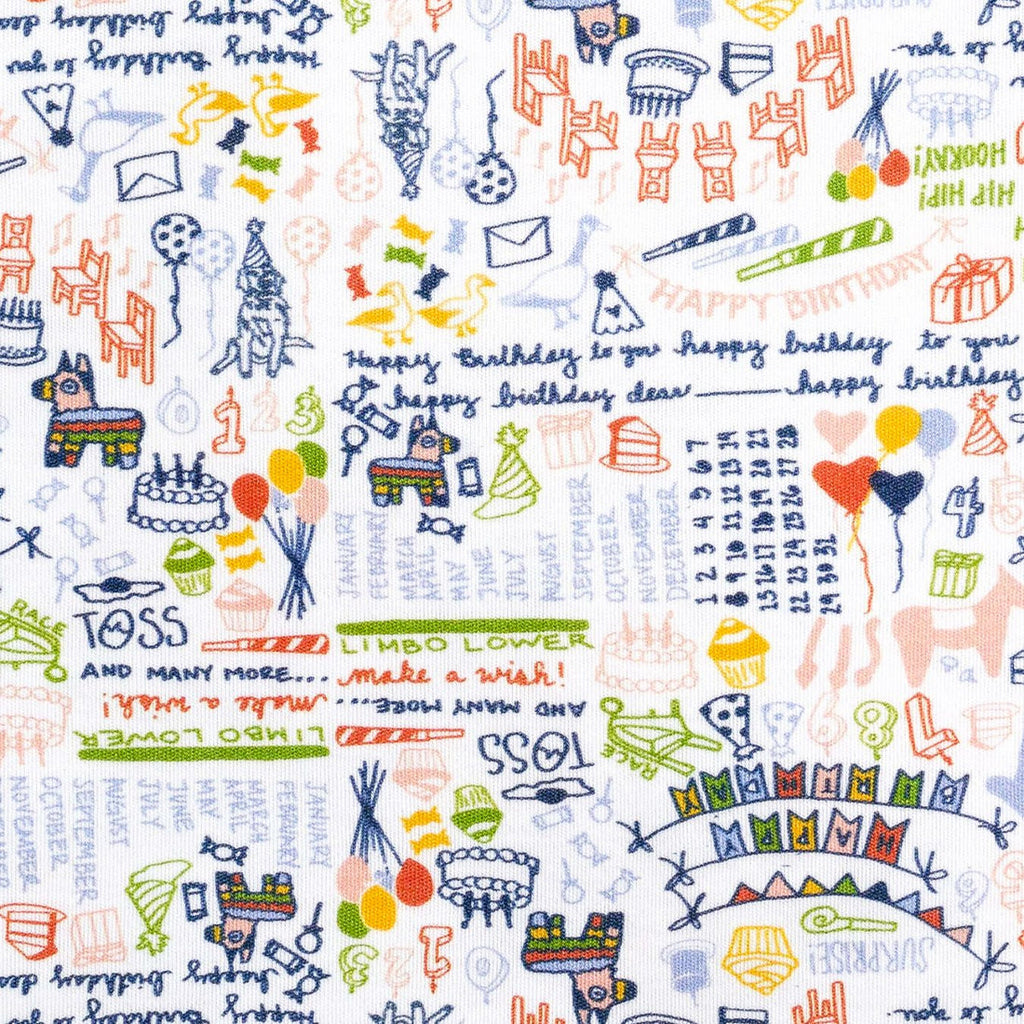 happy birthday to you Happy Birthday to you
A
HOORAY!
HIP HIP!
HAPPY BIRTHDAY
Happy Birthday to you happy birthday to you
happy birthday dear happy birthday
0 1 2 3
JANUARY
FEBRUARY
MARCH
APRIL
MAY
JUNE
JULY
AUGUST
SEPTEMBER
OCTOBER
NOVEMBER
DECEMBER
1 2 3 4 5 6 7
8 9 10 11 12 13 14
15 16 17 18 19 20 21
22 23 24 25 26 27 28
29 30 31
4 5
RACE
TOSS
LIMBO LOWER
AND MANY MORE...
make a wish!
make a wish!
AND MANY MORE....
LIMBO LOWER
TOSS
RACE
6 8 7
BIRTHDAY
HAPPY
JANUARY
FEBRUARY
MARCH
APRIL
MAY
JUNE
JULY
AUGUST
SEPTEMBER
OCTOBER
NOVEMBER
9
SURPRISE!
0 1 2 3
happy birthday dea
happy birthday to you Happy
to you